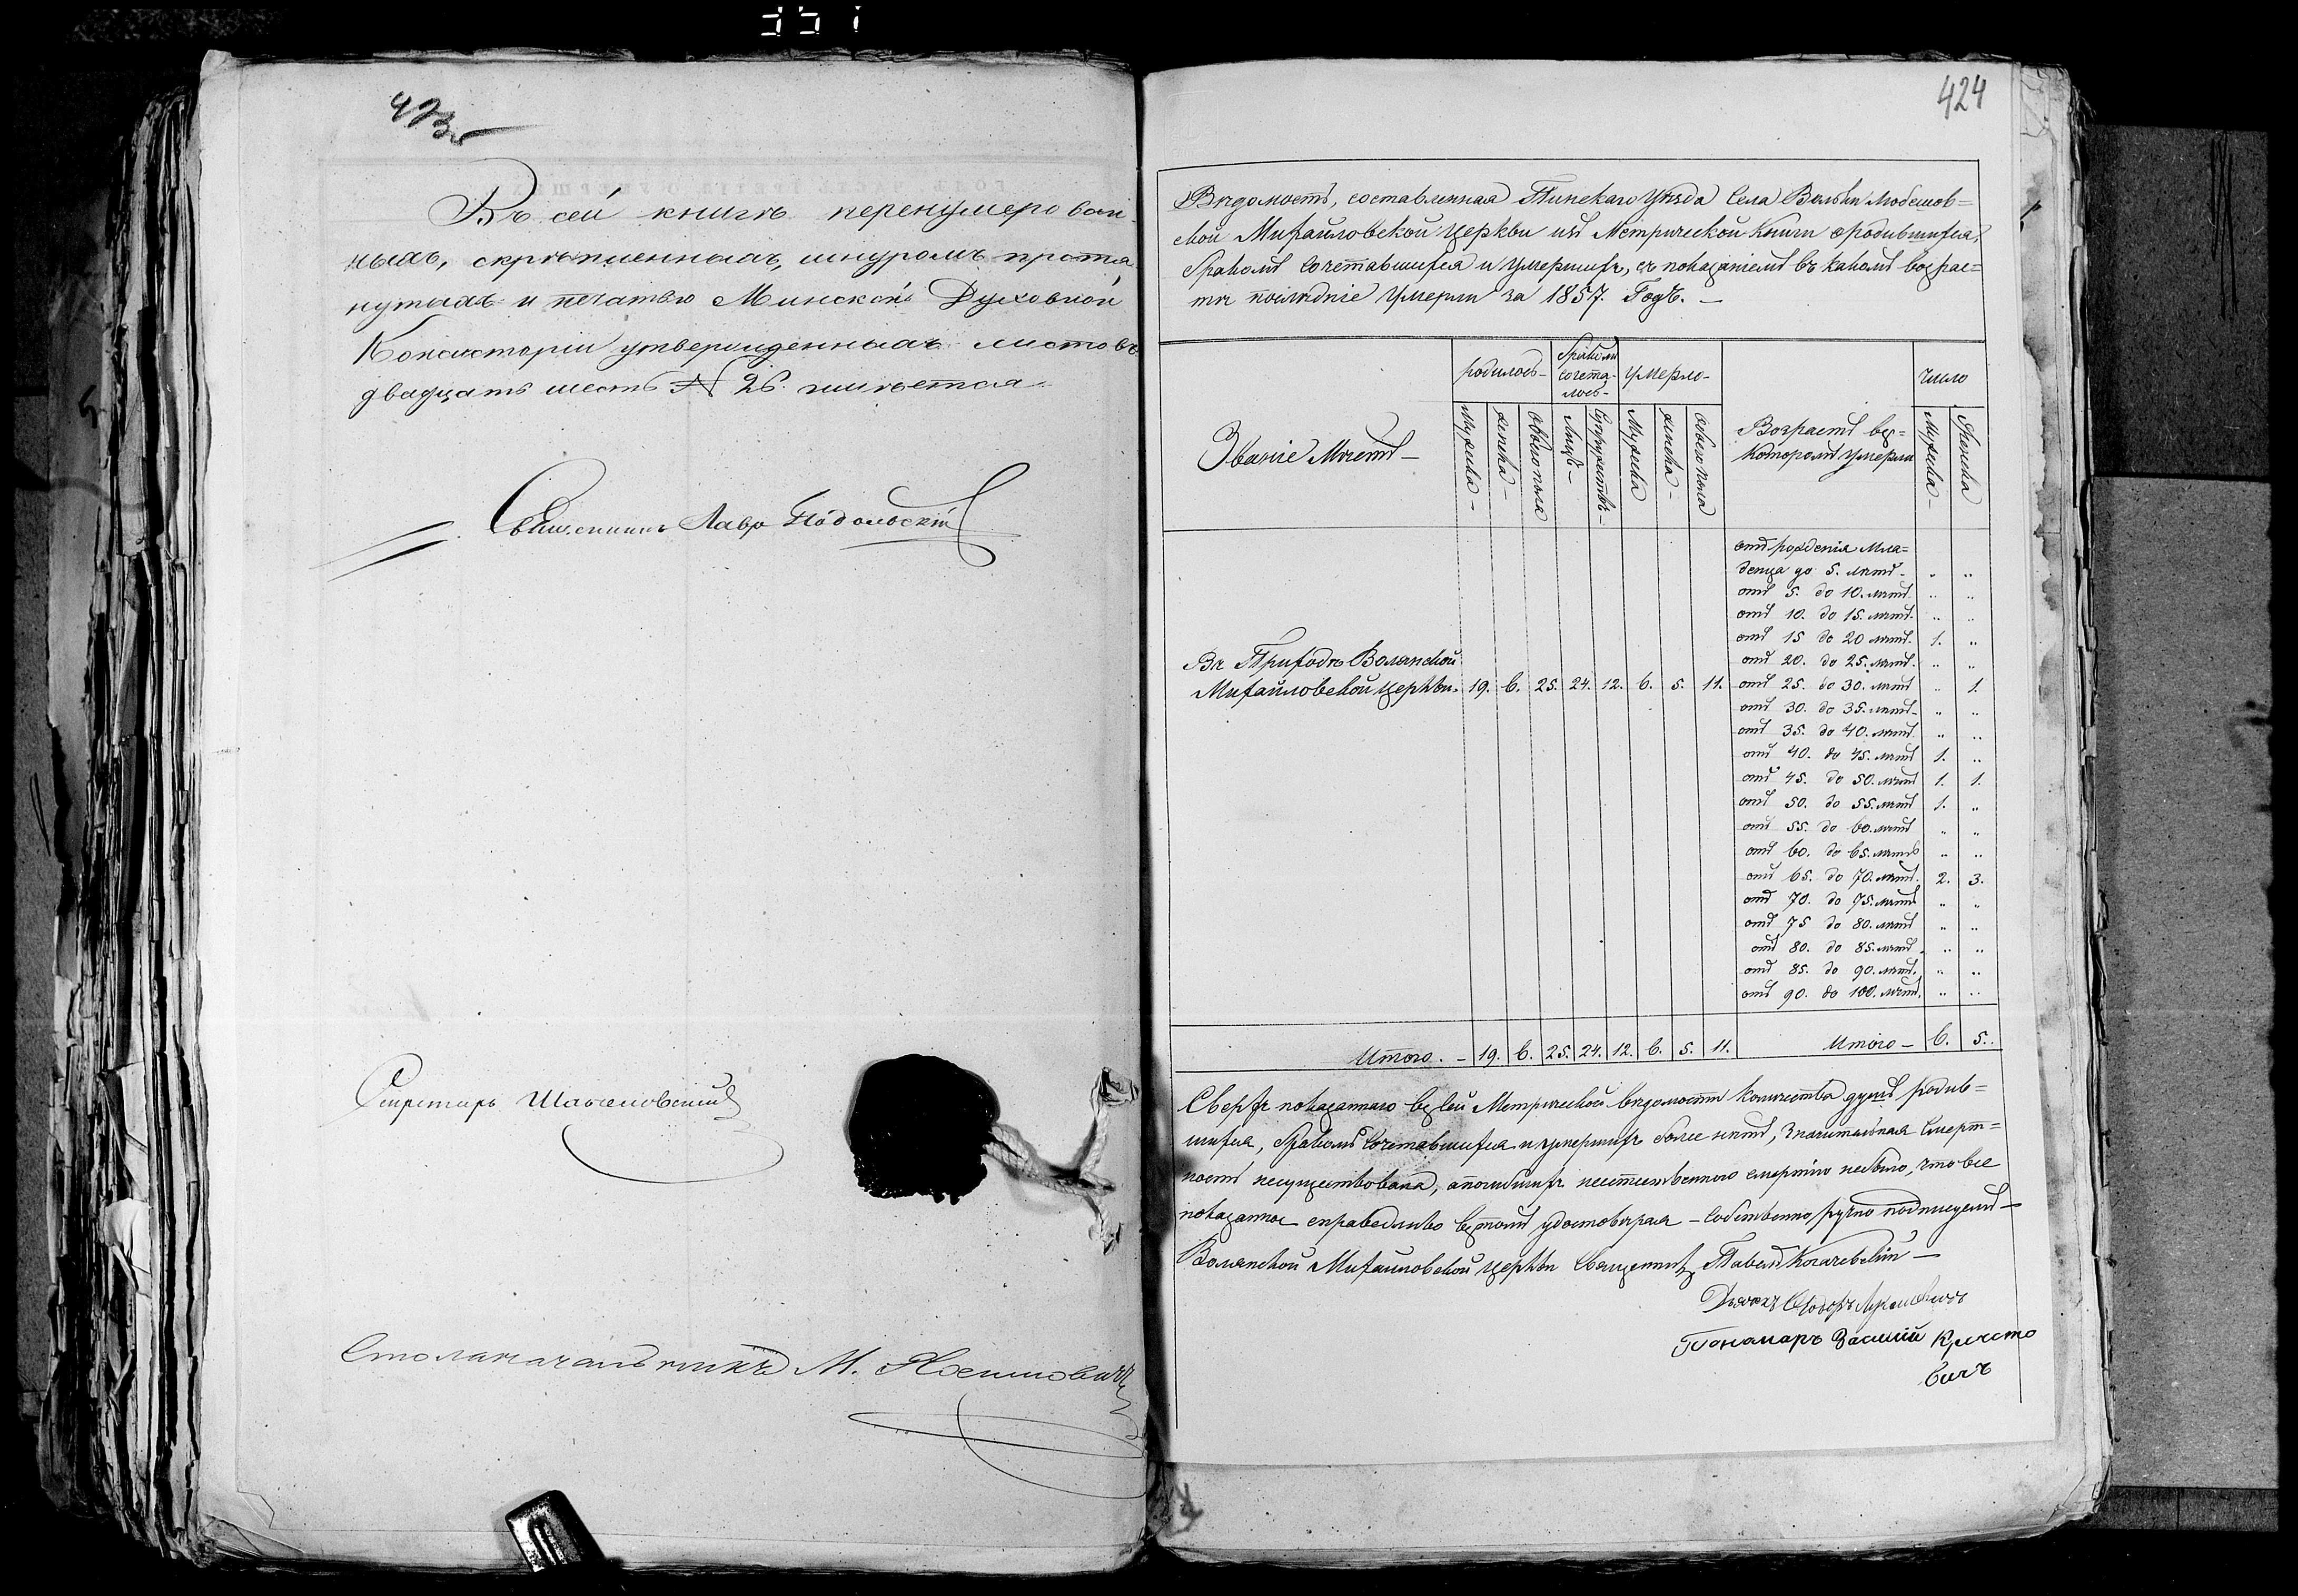 423
Въ сей книгѣ перенумерован-
ныхъ, скрѣпленныхъ, шнуромъ протя
нутыхъ и печатью Минской Духовной
Консисторіи утвержденныхъ листовъ
двадцать шесть № 26. числѣтся
Священникъ Лавр Подольскій
Секретарь
Столоначальникъ М.
424
Вѣдомость, составленная Пинскаго Уѣзда Села Вольки Любешов=
ской Михайловской церкви изъ Метрической Книги о родившихся,
браком сочетавшихся и умерших, съ показаніемъ въ каком возрас=
тѣ послѣдніе умерли за 1857. Годъ. —
Званіе Мѣстъ —
родилось —
браком сочета- лось —
умерло —
Возрастъ въ= которомъ умерли
число
Мужска —
женска —
обоего пола
Лицъ —
Супружествъ —
Мужска
женска —
обоего пола
Мужска —
Женска
отъ рожденія мла=
денца до 5. лѣтъ - „ „
отъ 5. до 10. лѣтъ. „ „
отъ 10. до 15. лѣтъ. „ „
отъ 15 до 20 лѣтъ. 1. „
отъ 20. до 25. лѣтъ. „ „
Въ Приходѣ Волянской
Михайловской церкви. 19. 6. 25. 24. 12. 6. 5. 11. отъ 25. до 30. лѣтъ „ 1.
отъ 30. до 35. лѣтъ - „ „
отъ 35. до 40. лѣтъ. „ „
отъ 40. до 45. лѣтъ 1. „
отъ 45. до 50. лѣтъ 1. 1.
отъ 50. до 55. лѣтъ 1. „
отъ 55. до 60. лѣтъ „ „
отъ 60. до 65. лѣтъ „ „
отъ 65. до 70. лѣтъ. 2. 3.
отъ 70. до 75. лѣтъ „ „
отъ 75 до 80. лѣтъ „ „
отъ 80. до 85. лѣтъ. „ „
отъ 85. до 90. лѣтъ. „ „
отъ 90. до 100. лѣтъ. „ „
Итого. — 19. 6. 25. 24. 12. 6. 5. 11. Итого — 6. 5.
Сверх показаннаго въ сей Метрической вѣдомости количества душъ родив=
шихся, браком сочетавшихся и умерших более нѣтъ, значительная смерт=
ность несуществовала, а погибших неестественного смертію небыло, что все
показанное справедливо въ томъ удостовѣряя — собственно ручно подписуемъ —
Волянской Михайловской церкви Священникъ Павелъ —
Дьячекъ Ѳеодоръ
Пономарь Василій Кристо
вичъ